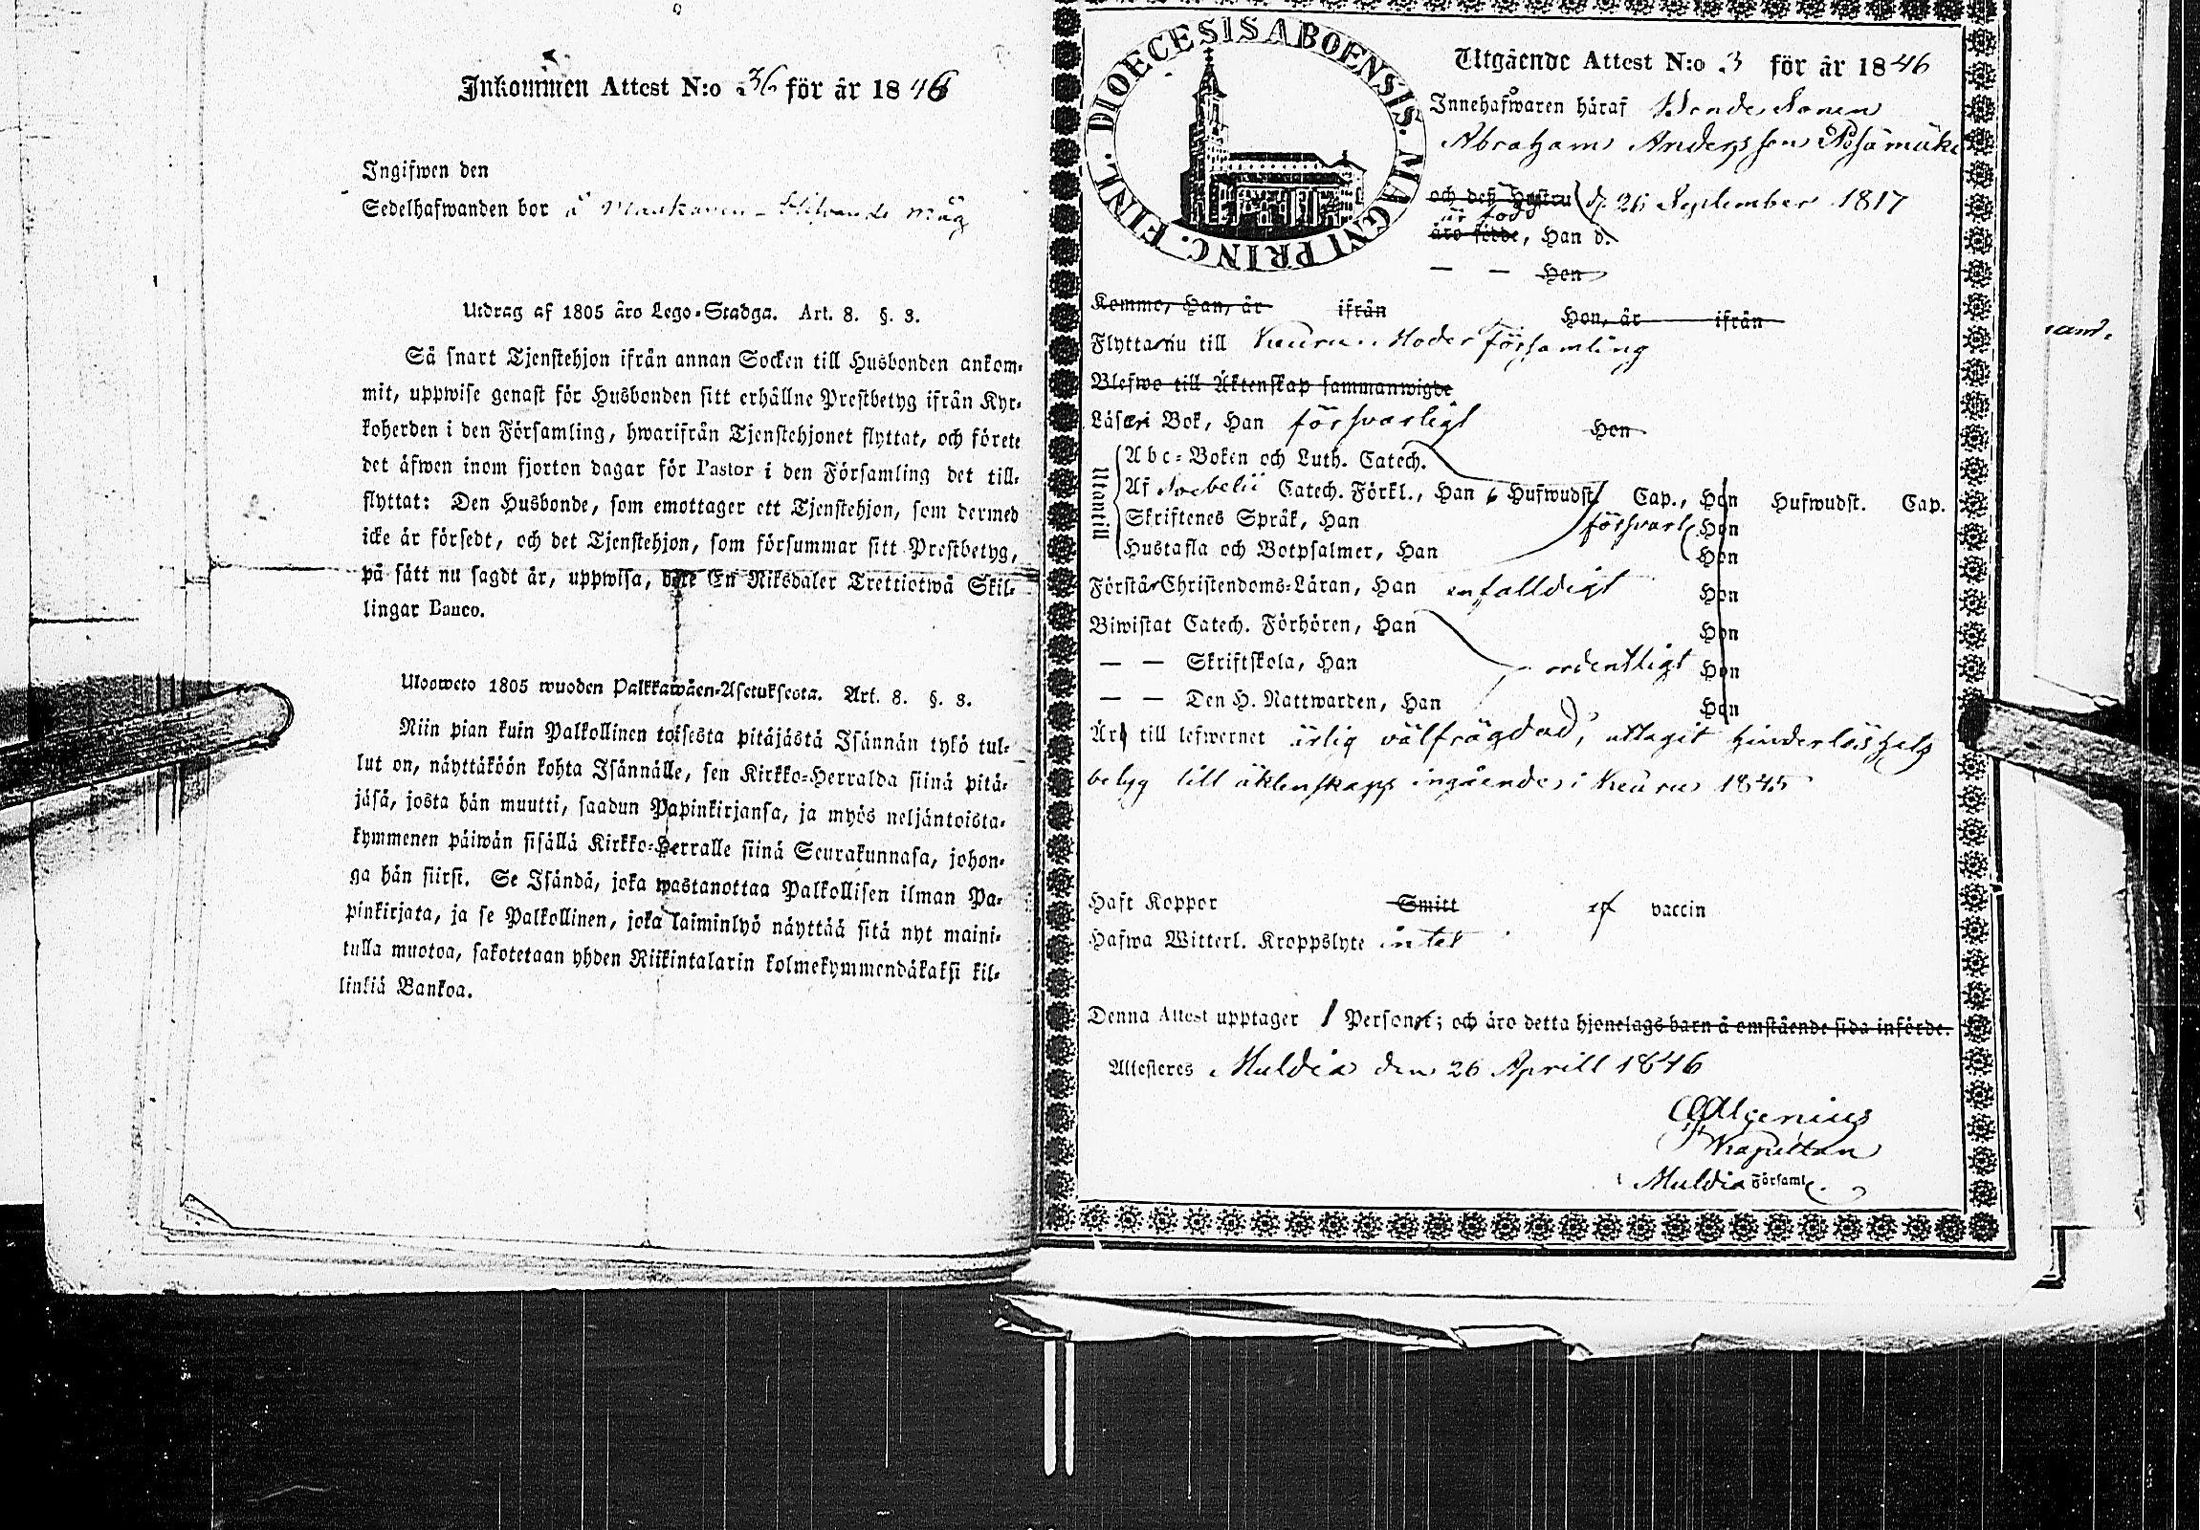 Inkommen Attest N:o 36 för år 1846
Ingifwen den
Sedelhafwanden bor å måg
Utdrag af 1805 års Lego-Stadga. Art. 8. §. 3.
Så snart Tjenstehjon ifrån annan Socken till Husbonden ankom-
mit, uppwise genast för Husbonden sitt erhållne Prestbetyg ifrån Kyr-
koherden i den Församling, hwarifrån Tjenstehjonet flyttat, och förete
det äfwen inom fjorton dagar för Pastor i den Församling det till-
flyttat: Den Husbonde, som emottager ett Tjenstehjon, som dermed
icke är försedt, och det Tjenstehjon, som försummar sitt Prestbetyg,
på sätt nu sagdt är, uppwisa, böte En Riksdaler Trettiotwå Skil-
lingar Banco.
Ulosweto 1805 wuoden Palkkawäen-Asetuksesta. Art. 8. §. 3.
Niin pian kuin Palkollinen toisesta pitäjästä Isännän tykö tul-
lut on, näyttäköön kohta Isännälle, sen Kirkko-Herralda siinä pitä-
jäsä, josta hän muutti, saadun Papinkirjansa, ja myös neljäntoista-
kymmenen päiwän sisällä Kirkko-Herralle siinä Seurakunnasa, johon-
ga hän siirsi. Se Isändä, joka wastanottaa Palkollisen ilman Pa-
pinkirjata, ja se Palkollinen, joka laiminlyö näyttää sitä nyt maini-
tulla muotoa, sakotetaan yhden Riikintalarin kolmekymmendäkaksi kil-
linkiä Bankoa.
DIOECESIS ABOENSIS. MAGNI PRINC. FINL.
Utgående Attest N:o 3 för år 1846
Innehafwaren häraf Bonde Sonen
Abraham Andersson
och deß Hustru d. 26 September 1817
är född
äro födde, Han d.
— — Hon
Komme, Han, år ifrån Hon, år ifrån
Flytta nu till Keuru Moder församling
Blefwo till Äktenskap sammanwigde
Läsa i Bok, Han försvarligt Hon
Utantill
Abc-Boken och Luth. Catech.
Af Catech. Förkl., Han 6 Hufwudst. Cap., Hon Hufwudst. Cap.
Skriftenes Språk, Han försvarl. Hon
Hustafla och Botpsalmer, Han Hon
Förstå Christendoms-Läran, Han enfalldigt Hon
Biwistat Catech. Förhören, Han Hon
— — Skriftskola, Han ordentligt Hon
— — Den H. Nattwarden, Han Hon
Är till lefwernet ärlig välfrägdad, uttagit hinderslöshets
betyg till äktenskaps ingående i Keuru 1845
Haft Koppor Smitt vaccin
Hafwa Witterl. Kroppslyte intet
Denna Attest upptager 1 Person; och äro detta hjonelags barn å omstående sida införde.
Attesteres Muldia den 26 Aprill 1846
Kapellan
Muldia Församl.